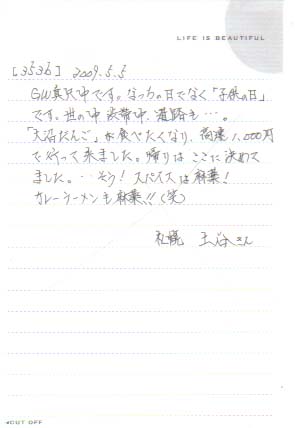 LIFE IS BEAUTIFUL
[3536] 2009.5.5
GW真只中です。なっちの日でなく「子供の日」
です。世の中 渋帯中、道路も…。
「大沼だんご」が食べたくなり、高速1,000円
で行って来ました。帰りは ここに決めて
ました。…そう！スパイスは麻薬！
カレーラーメンも麻薬!!!（笑）
札幌 玉谷さん
CUT OFF